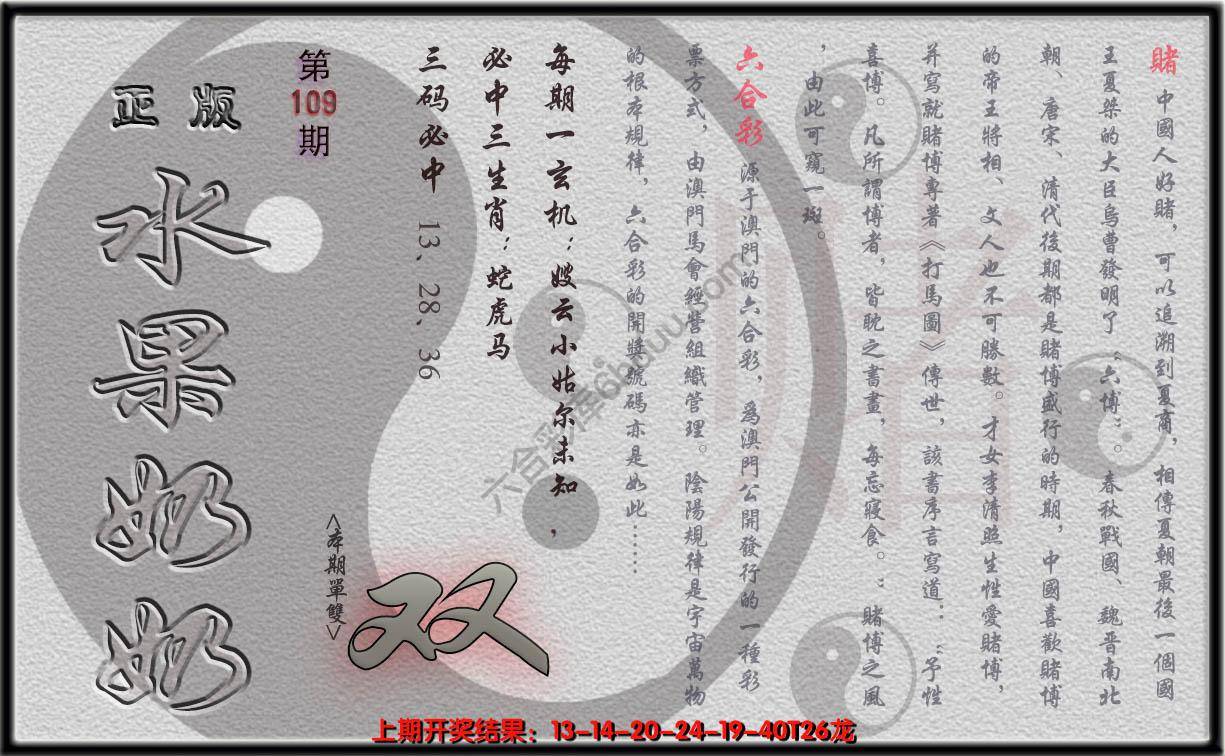 賭 中國人好賭，可以追溯到夏商，相傳夏朝最後一個國
王夏桀的大臣烏曹發明了“六博”。春秋戰國、魏晋南北
朝、唐宋、清代後期都是賭博盛行的時期，中國喜歡賭博
的帝王將相、文人也不可勝數。才女李清照生性愛賭博，
并寫就賭博專著《打馬圖》傳世，該書序言寫道：“予性
喜博。凡所謂博者，皆耽之書晝，每忘寢食。”賭博之風
，由此可窺一斑。
六合彩 源于澳門的六合彩，爲澳門公開發行的一種彩
票方式，由澳門馬會經營組織管理。陰陽規律是宇宙萬物
的根本規律，六合彩的開獎號碼亦是如此……
每期一玄机：嫂云小姑尔未知，
必中三生肖：蛇虎马
三码必中 13、28、36
第
109
期
<本期單雙>
双
正版
水果奶奶
上期开奖结果：13-14-20-24-19-40T26龙